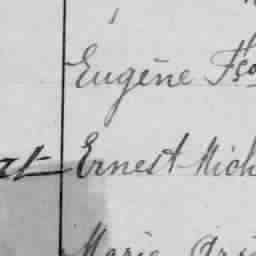 Eugène Fço
at Ernest Mich
Marie